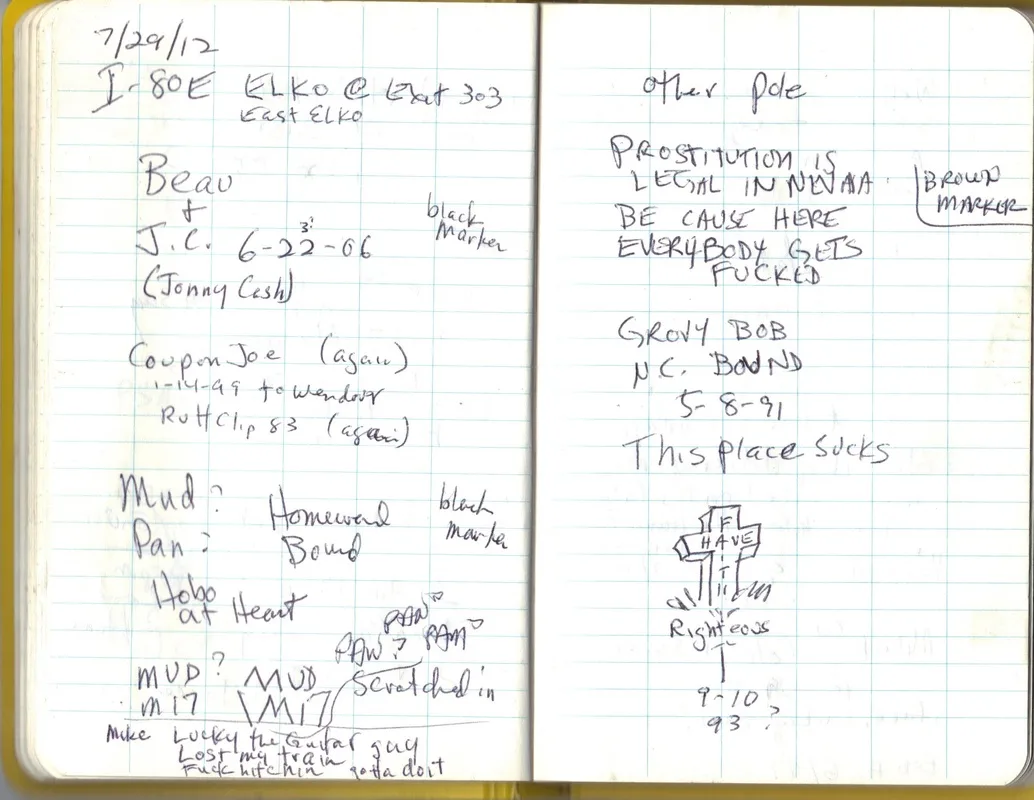 7/29/12
I-80E ELKO @ Exit 303
East Elko
Beau
+
J.C. 6-22-06
3?
black
marker
(Jonny Cash)
Coupon Joe (again)
1-14-99 to Wendover
RuttClip 83 (again)
Mud?
Pan?
Homeward
Bound
black
marker
Hobo
at Heart
PAW?
PAM?
PAW?
MUD?
M17
MUD
M17
Scratched in
Mike Lucky the Guitar guy
Lost my train
Fuck hitchin gotta do it
other pole
PROSTITUTION IS
LEGAL IN
BE CAUSE HERE
EVERYBODY GETS
FUCKED
BROWN
MARKER
GROVY BOB
N.C. BOUND
5-8-91
This place sucks
F
HAVE
I
T
H
Righteous
9-10
93 ?